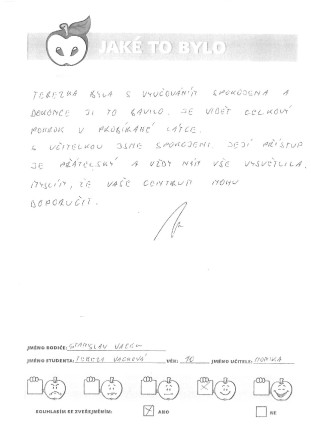 JAKÉ TO BYLO
TEREZKA BYLA S VYUČOVÁNÍM SPOKOJENA A
DOKONCE JI TO BAVILO. JE VIDĚT CELKOVÝ
POKROK V PROBÍRANÉ LÁTCE.
S UČITELKOU JSME SPOKOJENI. JEJÍ PŘÍSTUP
JE PŘÁTELSKÝ A VŽDY NÁM VŠE VYSVĚTLILA.
MYSLÍM, ŽE VAŠE CENTRUM MOHU
DOPORUČIT.
JMÉNO RODIČE: STANISLAV
JMÉNO STUDENTA: TEREZA VACHOVÁ VĚK: 10 JMÉNO UČITELE: MONIKA
SOUHLASÍM SE ZVEŘEJNĚNÍM: ANO NE